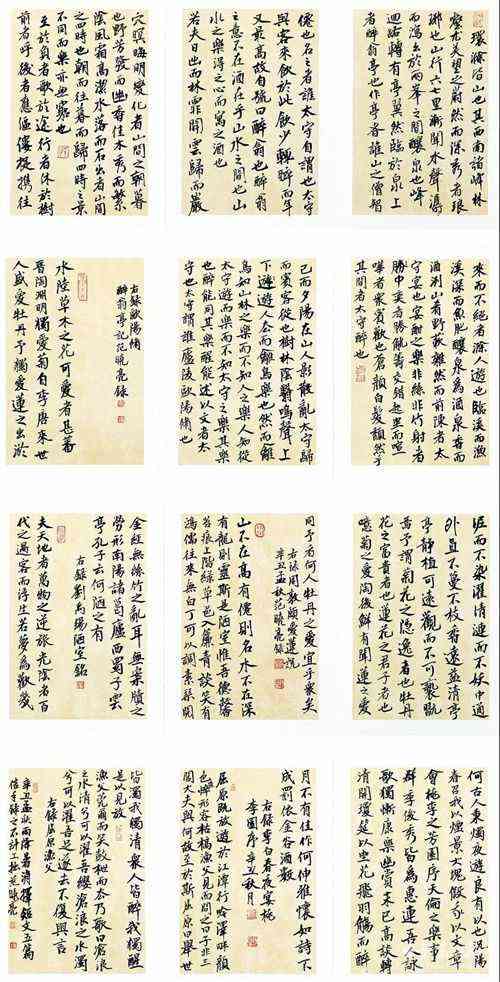 環滁皆山也其西南諸峰林
壑尤美望之蔚然而深秀者琅
琊也山行六七里漸聞水聲潺
而瀉出於兩峰之間釀泉也峰
迴路轉有亭翼然臨於泉上
者醉翁亭也作亭者誰山之僧智
僊也名之者誰太守自謂也太守
與客來飲於此飲少輒醉而年
又最高故自號曰醉翁也醉翁
之意不在酒在乎山水之間也山
水之樂得之心而寓之酒也
若夫日出而林霏開雲歸而巖
穴暝晦明變化者山間之朝暮
也野芳發而幽香佳木秀而繁
陰風霜高潔水落而石出者山間
之四時也朝而往暮而歸四時之景
不同而樂亦無窮也
至於負者歌於途行者休於樹
前者呼後者應傴僂提攜往
來而不絕者滁人遊也臨溪而漁
溪深而魚肥釀泉為酒泉香而
酒洌山肴野蔌雜然而前陳者太
守宴也宴酣之樂非絲非竹射者
中奕者勝觥籌交錯起坐而喧
嘩者眾賓歡也蒼顏白髮頹然乎
其間者太守醉也
已而夕陽在山人影散亂太守歸
而賓客從也樹林陰翳鳴聲上
下遊人去而禽鳥樂也然而禽
鳥知山林之樂而不知人之樂人知從
太守遊而樂而不知太守之樂其樂
也醉能同其樂醒能述以文者太
守也太守謂誰廬陵歐陽脩也
右錄歐陽脩
醉翁亭記范曉亮錄
水陸草木之花可愛者甚蕃
晉陶淵明獨愛菊自李唐來世
人盛愛牡丹予獨愛蓮之出淤
泥而不染濯清漣而不妖中通
外直不蔓不枝香遠益清亭
亭靜植可遠觀而不可褻翫
焉予謂菊花之隱逸者也牡丹
花之富貴者也蓮花之君子者也
噫菊之愛陶後鮮有聞蓮之愛
同予者何人牡丹之愛宜乎眾矣
右錄周敦頤愛蓮說
辛丑孟秋范曉亮錄
山不在高有僊則名水不在深
有龍則靈斯是陋室惟吾德馨
苔痕上階綠草色入簾青談笑有
鴻儒往來無白丁可以調素琴閱
金經無絲竹之亂耳無案牘之
勞形南陽諸葛廬西蜀子雲
亭孔子云何陋之有
右錄劉禹錫陋室銘
夫天地者萬物之逆旅光陰者百
代之過客而浮生若夢為歡幾
何古人秉燭夜遊良有以也況陽
春召我以煙景大塊假我以文章
會桃李之芳園序天倫之樂事
群季俊秀皆為惠連吾人詠
歌獨慚康樂幽賞未已高談轉
清開瓊筵以坐花飛羽觴而醉
月不有佳作何伸雅懷如詩不
成罰依金谷酒數
右錄李白春夜宴桃
李園序辛丑秋月
屈原既放遊於江潭行吟澤畔顏
色憔悴形容枯槁漁父見而問之曰子非三
閭大夫與何故至於斯屈原曰舉世
皆濁我獨清眾人皆醉我獨醒
是以見放
漁父莞爾而笑鼓枻而去乃歌曰滄浪
之水清兮可以濯吾纓滄浪之水濁
兮可以濯吾足遂去不復與言
右錄屈原漁父